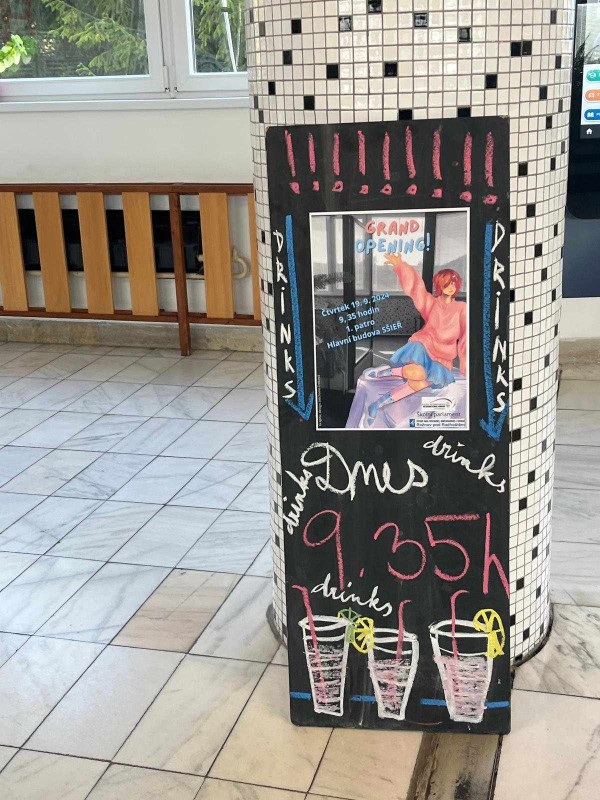 !!!!!!!!!
DRiNKS
DRiNKS
GRAND
OPENING!
Čtvrtek 19. 9. 2024
9, 35 hodin
1. patro
Hlavní budova SŠIEŘ
Školní parlament
Rožnov pod Radhoštěm
drinks
drinks
Dnes
9.35h
drinks